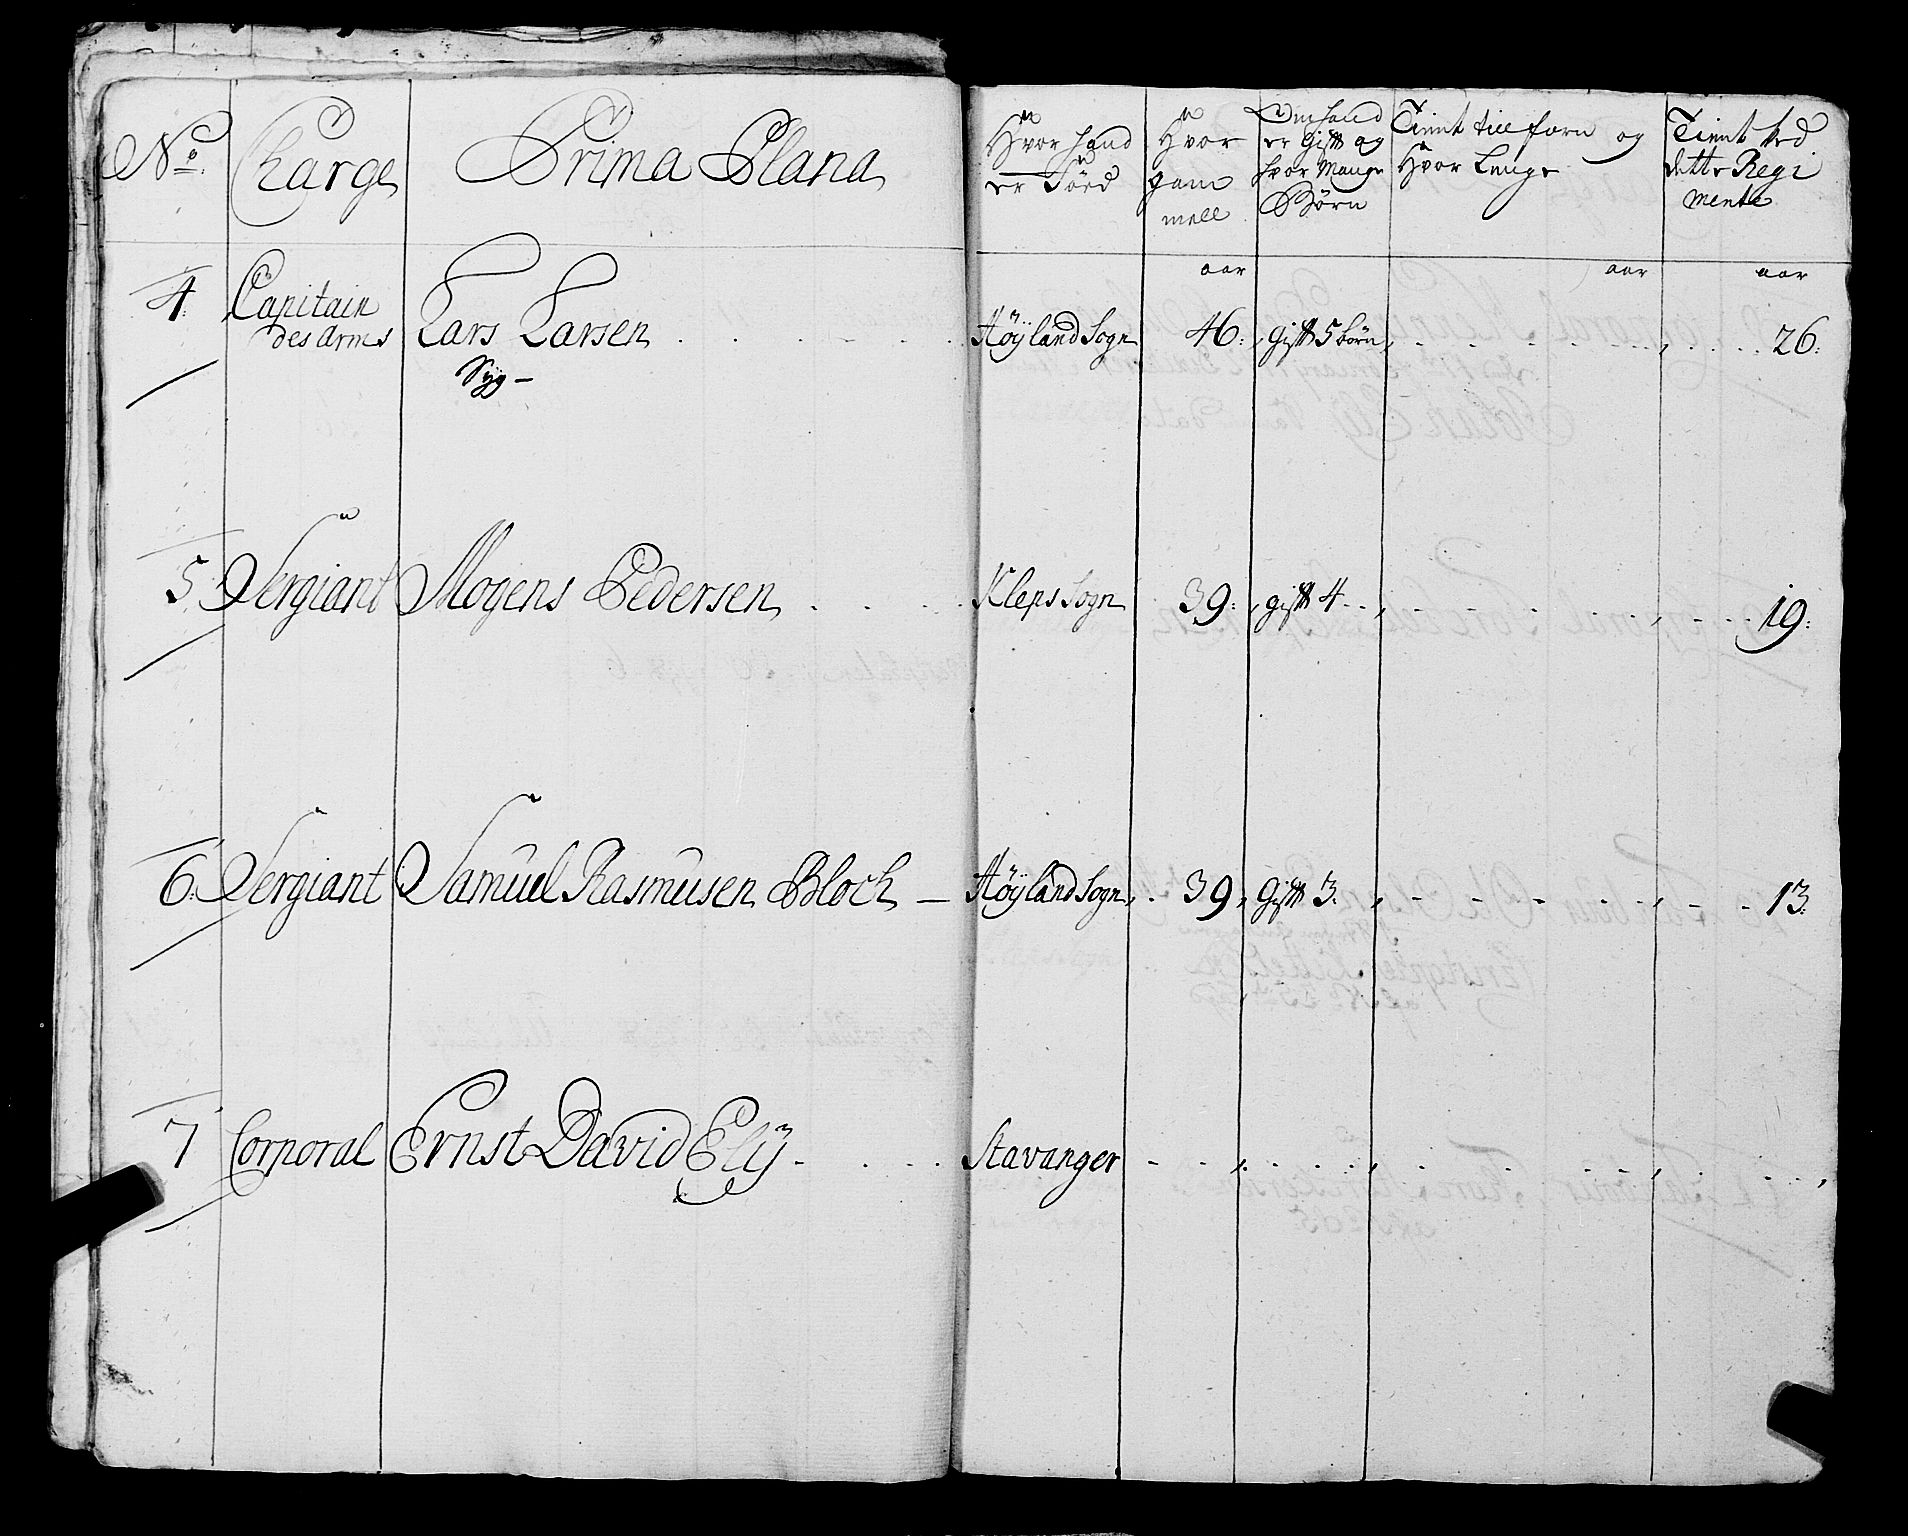 No. Charge Prima Plana Hvor hand er Föed Hvor gam mell Om hand er Gift og hvor Mange Börn Tient till forn og Hvor Lenge Tient ved dette Regi mente
aar aar aar
4. Capitain des Arms Lars Larsen . . . . . Höÿland Sogn 46. Gift 5 börn 26.
Syg -
5. Sergiant Mogens Pedersen . . . . Kleps Sogn 39. gift 4 19.
6. Sergiant Samuel Rasmusen Bloch - Höÿland Sogn 39, Gift 3. 13.
7 Corporal Ernst David Elÿ - . . . . Stavanger